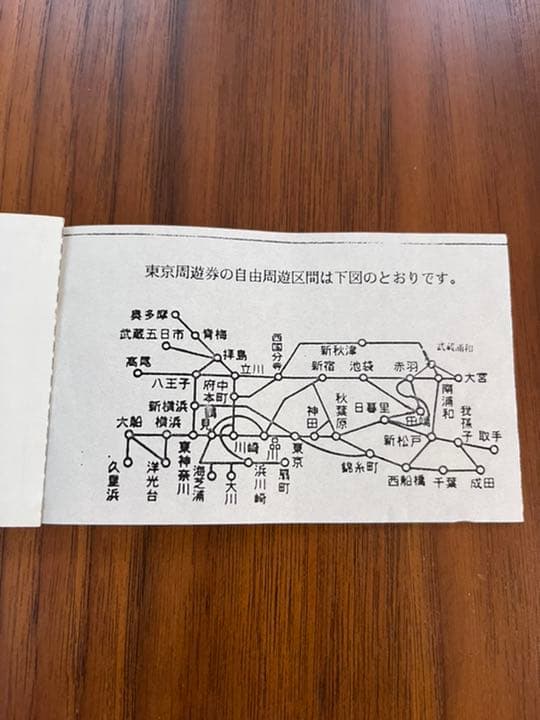 東京周遊券の自由周遊区間は下図のとおりです。
奥多摩
武蔵五日市
青梅
西国分寺
新秋津
武蔵浦和
高尾
拝島
立川
新宿
池袋
赤羽
大宮
八王子
府中本町
南浦和
新横浜
鶴見
秋葉原
日暮里
田端
我孫子
大船
横浜
川崎
品川
東京
神田
新松戸
取手
久里浜
洋光台
東神奈川
海芝浦
大川
浜川崎
扇町
錦糸町
西船橋
千葉
成田